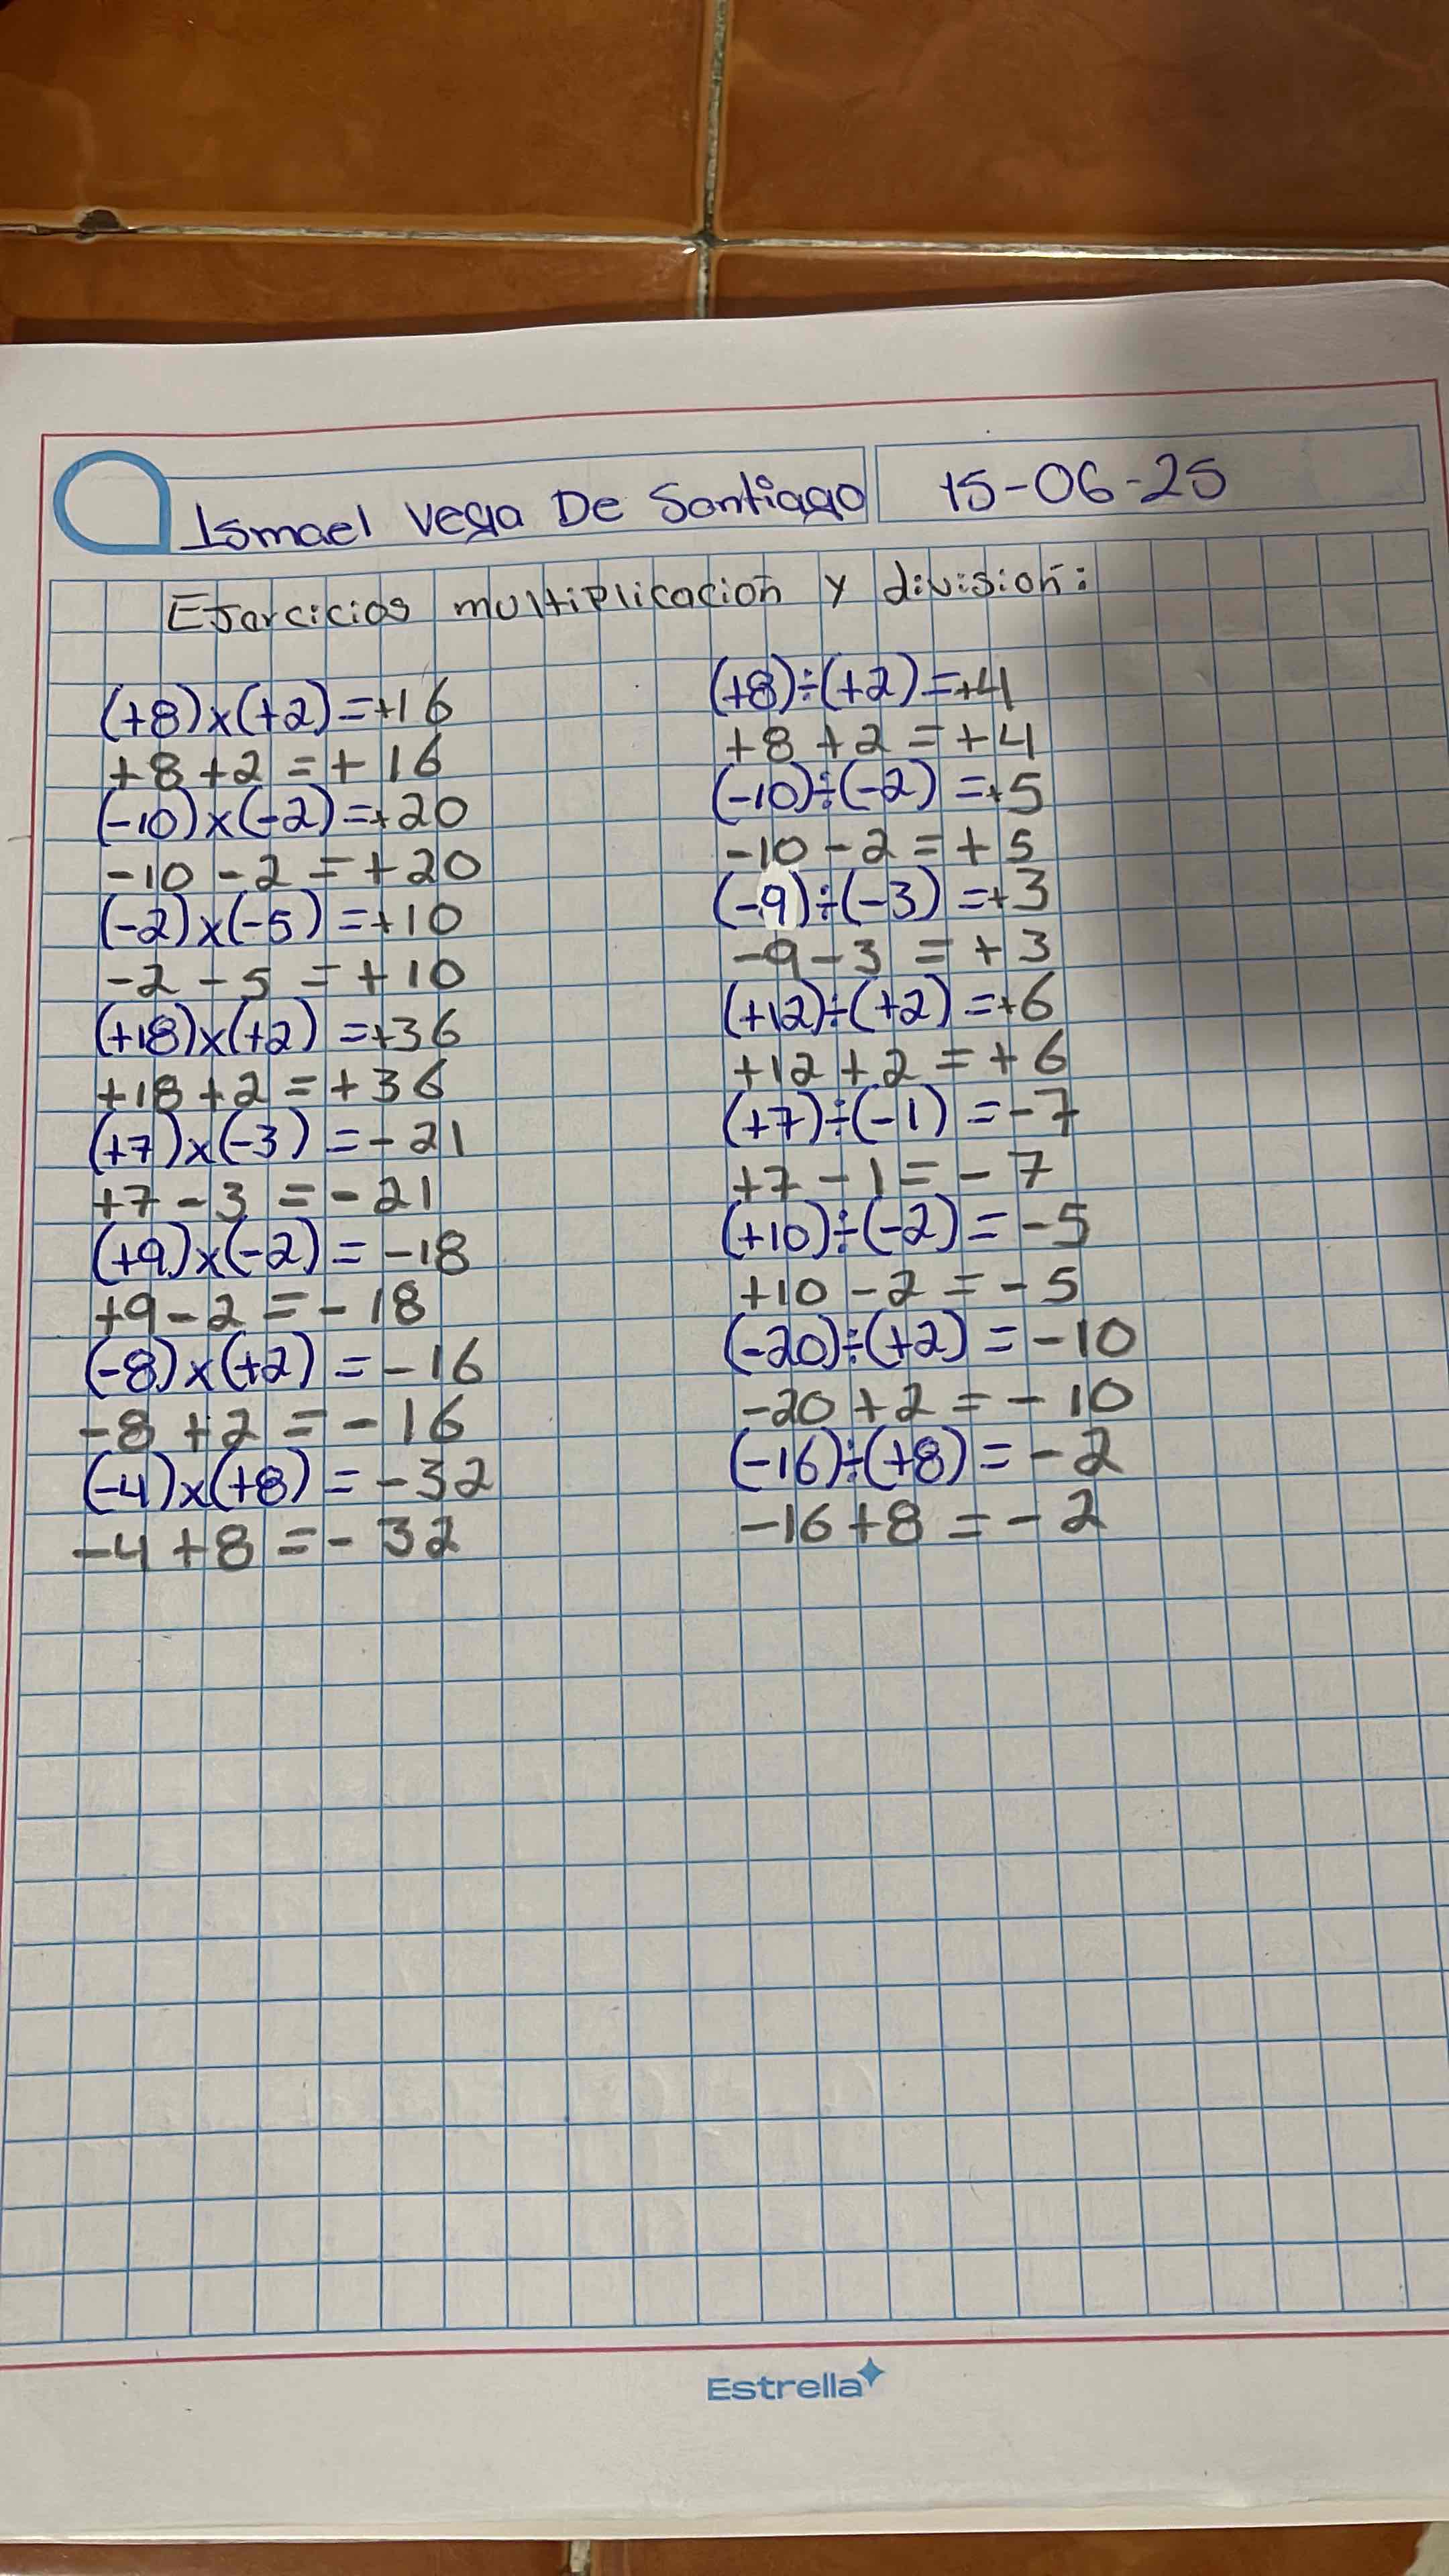 Ismael Vega De Santiago
15-06-25
Ejercicios multiplicacion y division:
(+8)x(+2)=+16
+8+2=+16
(-10)x(-2)=+20
-10-2=+20
(-2)x(-5)=+10
-2-5=+10
(+18)x(+2)=+36
+18+2=+36
(+7)x(-3)=-21
+7-3=-21
(+9)x(-2)=-18
+9-2=-18
(-8)x(+2)=-16
-8+2=-16
(-4)x(+8)=-32
-4+8=-32
(+8)÷(+2)=+4
+8+2=+4
(-10)÷(-2)=+5
-10-2=+5
(-9)÷(-3)=+3
-9-3=+3
(+12)÷(+2)=+6
+12+2=+6
(+7)÷(-1)=-7
+7-1=-7
(+10)÷(-2)=-5
+10-2=-5
(-20)÷(+2)=-10
-20+2=-10
(-16)÷(+8)=-2
-16+8=-2
Estrella